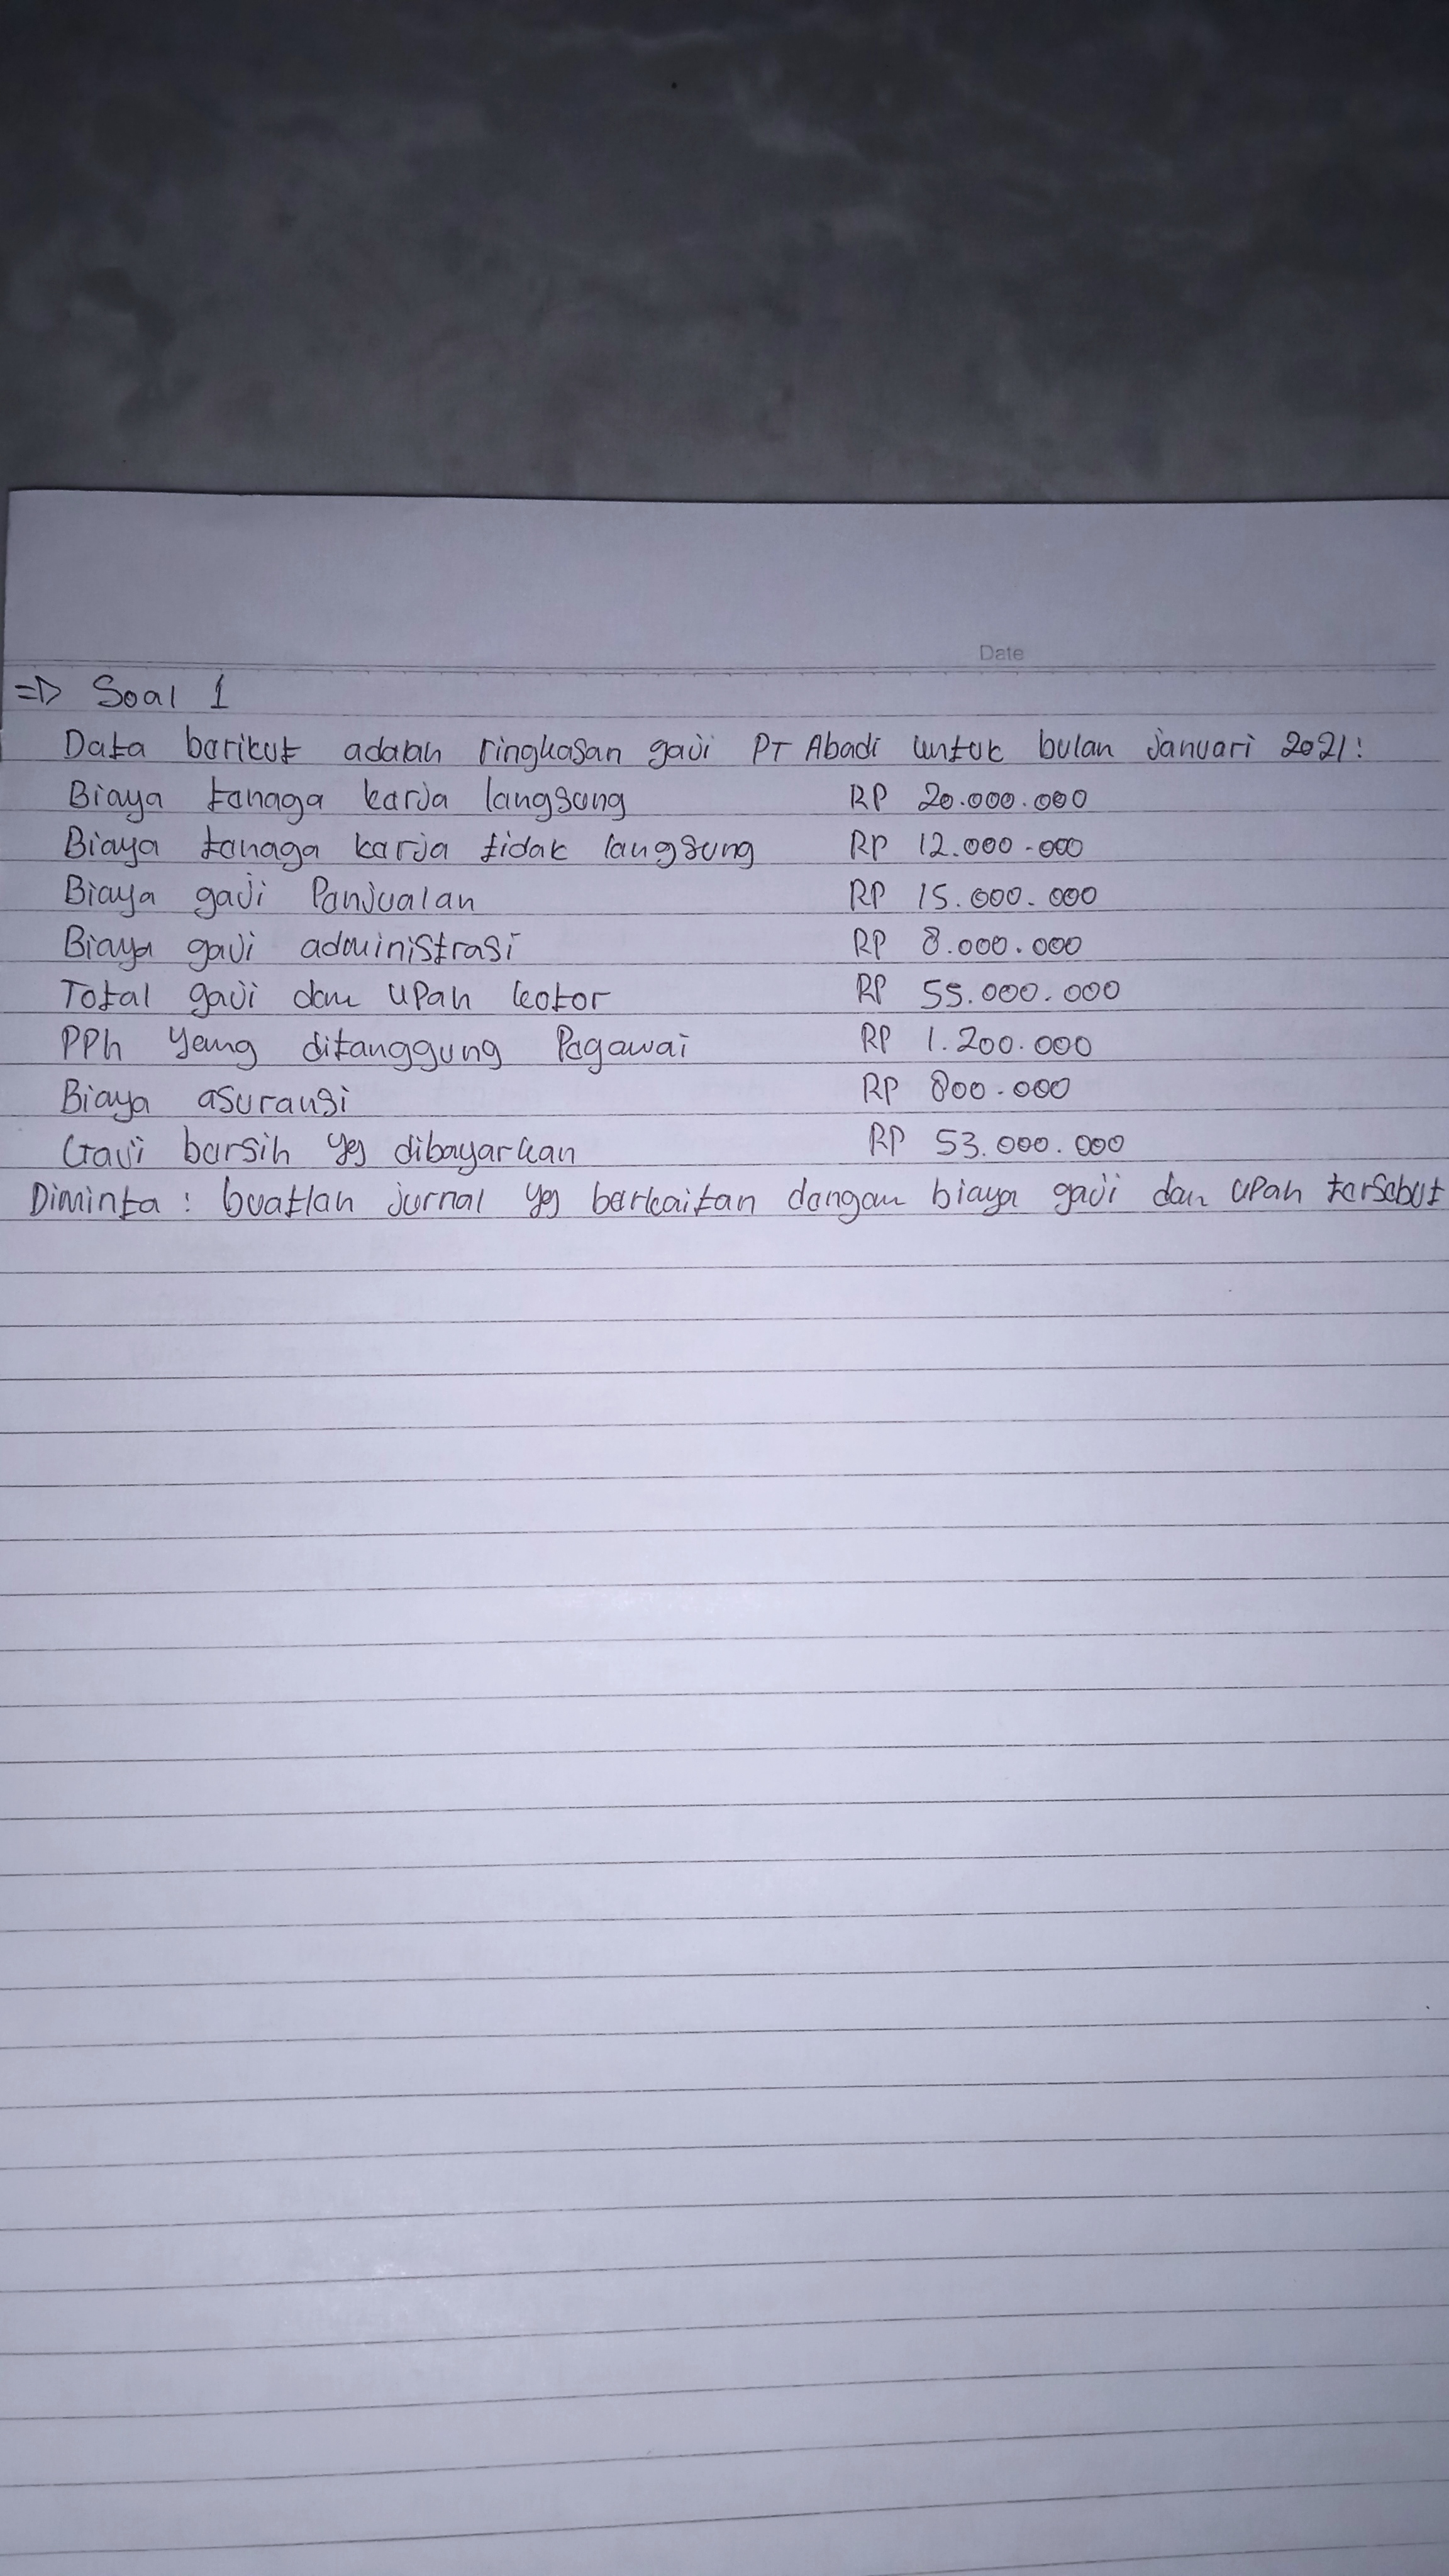 Date
=> Soal 1
Data barikut adalah ringkasan gaji PT Abadi untuk bulan januari 2021!
Biaya tanaga karja langsung RP 20.000.000
Biaya tanaga karja tidak langsung RP 12.000.000
Biaya gaji Panjualan RP 15.000.000
Biaya gaji administrasi RP 8.000.000
Total gaji dan upah kotor RP 55.000.000
PPh yang ditanggung Pagawai RP 1.200.000
Biaya asuransi RP 800.000
Gaji barsih yg dibayarkan RP 53.000.000
Diminta : buatlah jurnal yg barkaitan dangan biaya gaji dan upah tarsabut